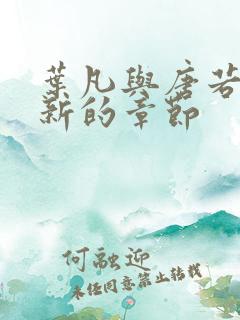 葉凡與唐若
新的章節
何融迎
未經同意禁止轉載